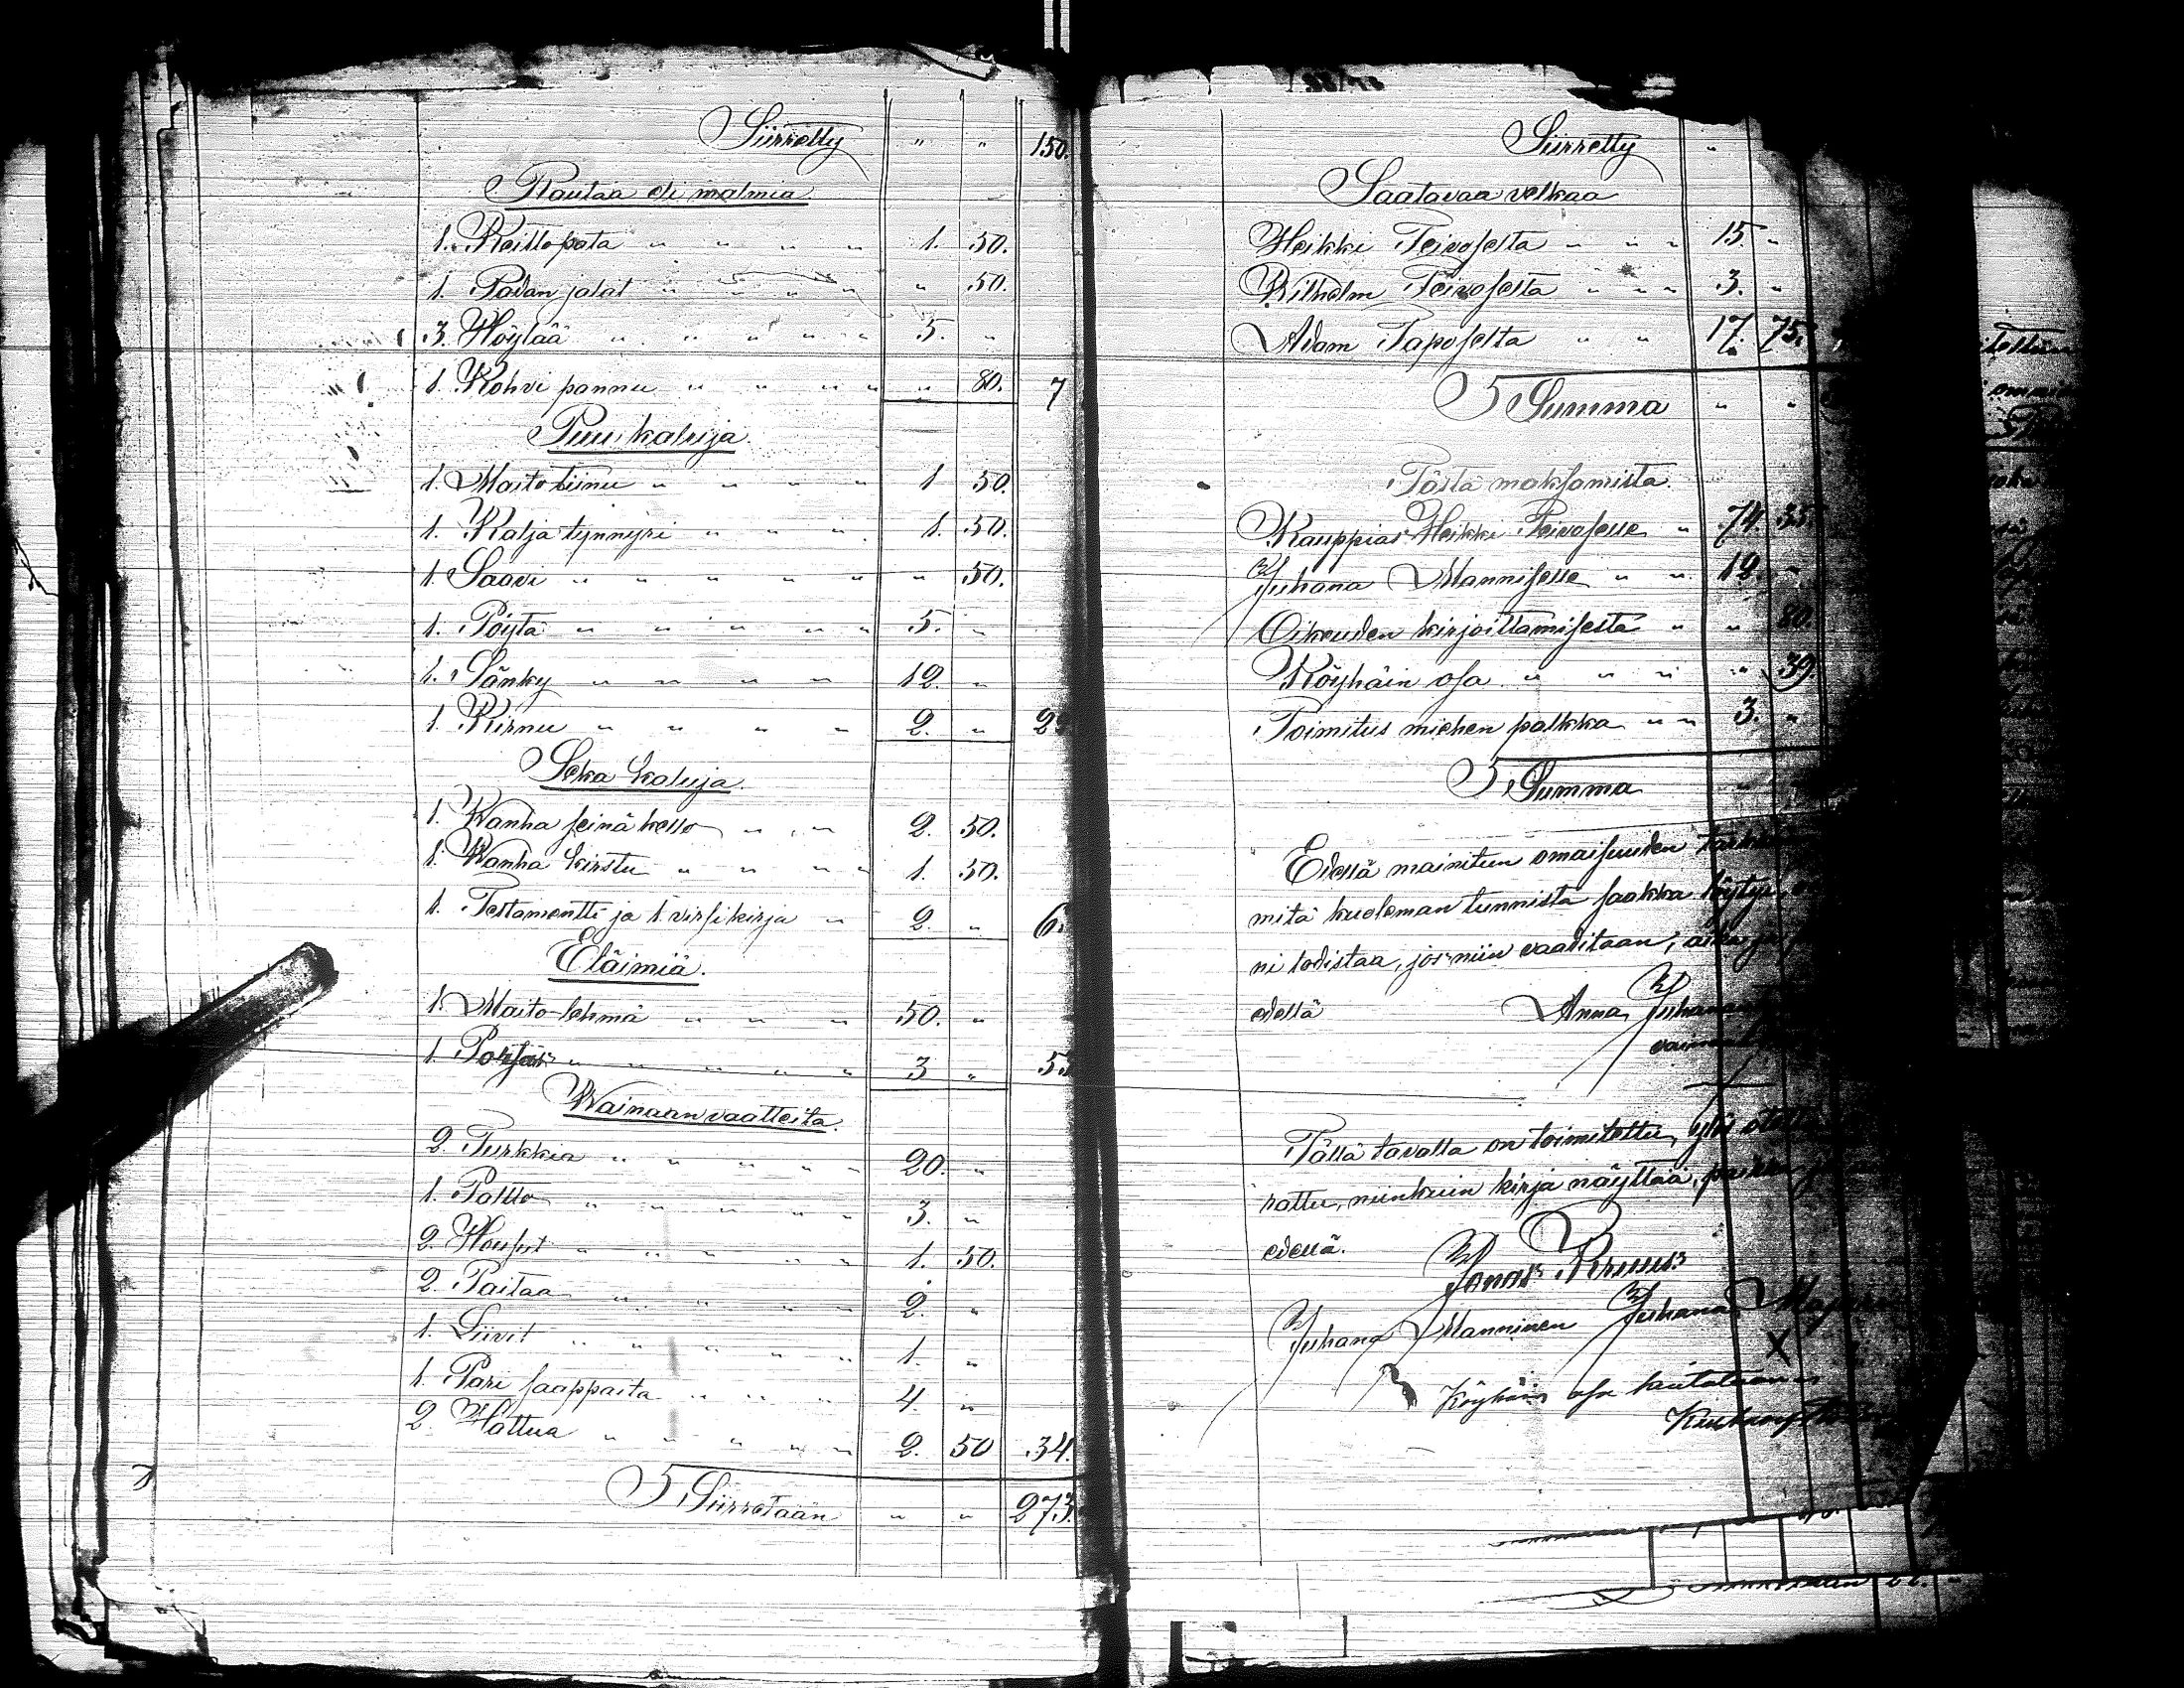 Siirretty " " 150.
Rautaa eli malmia
1. Keitto pata " " " " " 1. 50.
1. Padan jalat " " " " " " 50.
3. Höylää " " " " " 5. "
1. Kohvi pannu " " " " " " 80. 7
Puu kaluja.
1. Maito tiinu " " " " 1 50.
1. Kalja tynnyri " " " 1. 50.
1. Saavi " " " " " " 50.
1. Pöytä " " " " " 5. "
1. Sänky " " " " 12. "
1. Kirnu " " " " 2. " 2
Seka kaluja.
1. Wanha seinä kello " " 2. 50.
1. Wanha kirstu " " " " 1. 50.
1. Testamentti ja 1. virsikirja " 2. " 6.
Eläimiä.
1. Maito-lehmä " " " 50. "
1. Porsas " " " " " 3 " 53
Wainaan vaatteita.
2 Turkkia " " " " " 20. "
1. Paltto " " " " " 3. "
2. Housut " " " " " 1. 50.
2. Paitaa " " " " 2. "
1. Liivit " " " " " 1. "
1. Pari saappaita " " " 4. "
2 Hattua " " " " " 2. 50 34.
Siirretään " " 273.
Siirretty "
Saatavaa velkaa
Heikki Teivoselta " " " 15. "
Wilhelm Teivoselta " " " 3. "
Adam Taposelta " " 17. 75.
Summa " "
Tästä maksamista.
Kauppias Heikki Teivoselle " 74. 35.
Juhana Manniselle " " 12. "
Oikeuden kirjoittamisesta " " 80.
Köyhäin osa " " " " 39.
Toimitus miehen palkka " " 3. "
Summa "
Edellä mainitun omaisuuden
mitä kuoleman tunnista saakka löytyi
ni todistaa, jos niin vaaditaan, aika ja
edellä Anna Juhanan
vaimo
Tällä tavalla on toimitettu, ylös otettu
rattu, niinkuin kirja näyttää, paikka
edellä. Jonas
Juhana Manninen Juhana
X
Köyhäin osa